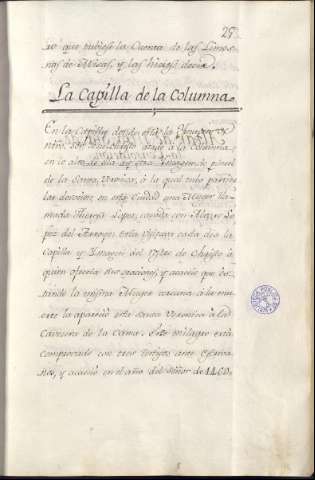 25
ro que tubiese la Cuenta de las Limos
nas de Misas, y las hiciese decir.
La Capilla de la Columna
En la Capilla donde està la
nuestro Señor atado à la Columna,
en lo alto de ella ay una Imagen de pincel
de la Santa Veronica, à la qual tubo particu
lar devocion en esta Ciudad una Muger lla
mada Theresa Lopez, casada con Alonso Lo
pez del Arroyo. Esta visitaba cada dia la
Capilla y Imagen del Señor de Christo à
quien ofrecia oraciones, y acaecio que es
tando la misma Muger cercana à la mu
erte la aparecio esta Santa Veronica à la
Cavecera de la Cama: Este milagro està
comprovado con tres testigos ante Escriva
nos, y acaecio en el año del Señor de 1400.